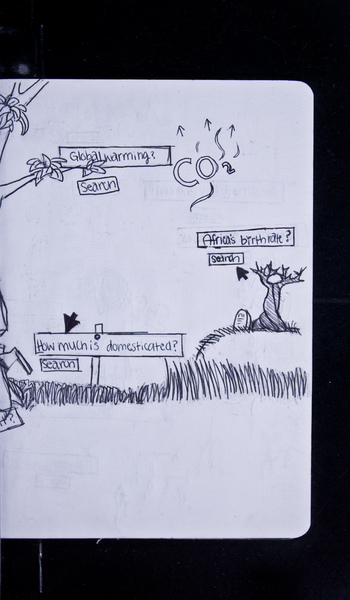 Global warming?
Search
CO2
Africa's birthrate?
Search
How much is domesticated?
Search